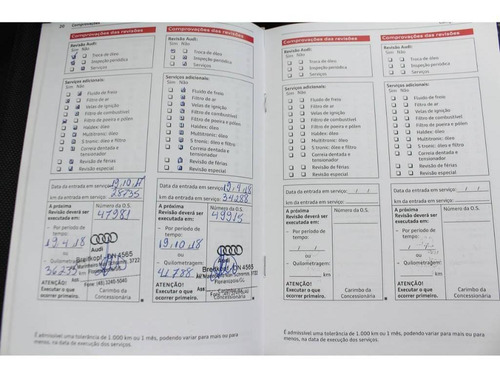 20 Comprovações
Comprovações das revisões
Revisão Audi:
Sim Não
Troca de óleo
Inspeção periódica
Serviços
Serviços adicionais:
Sim Não
Fluido de freio
Filtro de ar
Velas de ignição
Filtro de combustível
Filtro de poeira e pólen
Haldex: óleo
Multitronic: óleo
S tronic: óleo e filtro
Correia dentada e
tensionador
Revisão de férias
Revisão especial
Data da entrada em serviço: 19.10.17
km da entrada em serviço: 28735
A próxima
Revisão deverá ser
executada em:
Número da O.S.
47981
– Por período de
tempo:
19.4.18
ou
– Quilometragem:
36235 km
ATENÇÃO!
Executar o que
ocorrer primeiro.
Audi
Breitkopf - DN 4565
Fone: (48) 3240-5040
Ass
Carimbo da
Concessionária
Comprovações das revisões
Revisão Audi:
Sim Não
Troca de óleo
Inspeção periódica
Serviços
Serviços adicionais:
Sim Não
Fluido de freio
Filtro de ar
Velas de ignição
Filtro de combustível
Filtro de poeira e pólen
Haldex: óleo
Multitronic: óleo
S tronic: óleo e filtro
Correia dentada e
tensionador
Revisão de férias
Revisão especial
Data da entrada em serviço: 19.4.18
km da entrada em serviço: 34288
A próxima
Revisão deverá ser
executada em:
Número da O.S.
49915
– Por período de
tempo:
19.10.18
ou
– Quilometragem:
41788 km
ATENÇÃO!
Executar o que
ocorrer primeiro.
Audi
Breitkopf - DN 4565
Florianópolis
Ass
Carimbo da
Concessionária
É admissível uma tolerância de 1.000 km ou 1 mês, podendo variar para mais ou para
menos, na data de execução dos serviços.
Comprovações das revisões
Revisão Audi:
Sim Não
Troca de óleo
Inspeção periódica
Serviços
Serviços adicionais:
Sim Não
Fluido de freio
Filtro de ar
Velas de ignição
Filtro de combustível
Filtro de poeira e pólen
Haldex: óleo
Multitronic: óleo
S tronic: óleo e filtro
Correia dentada e
tensionador
Revisão de férias
Revisão especial
Data da entrada em serviço: / /
km da entrada em serviço:
A próxima
Revisão deverá ser
executada em:
Número da O.S.
– Por período de
tempo:
/ /
ou
– Quilometragem:
km
ATENÇÃO!
Executar o que
ocorrer primeiro.
Carimbo da
Concessionária
Comprovações das revisões
Revisão Audi:
Sim Não
Troca de óleo
Inspeção periódica
Serviços
Serviços adicionais:
Sim Não
Fluido de freio
Filtro de ar
Velas de ignição
Filtro de combustível
Filtro de poeira e pólen
Haldex: óleo
Multitronic: óleo
S tronic: óleo e filtro
Correia dentada e
tensionador
Revisão de férias
Revisão especial
Data da entrada em serviço: / /
km da entrada em serviço:
A próxima
Revisão deverá ser
executada em:
Número da O.S.
– Por período de
tempo:
/ /
ou
– Quilometragem:
km
ATENÇÃO!
Executar o que
ocorrer primeiro.
Carimbo da
Concessionária
É admissível uma tolerância de 1.000 km ou 1 mês, podendo variar para mais ou para
menos, na data de execução dos serviços.